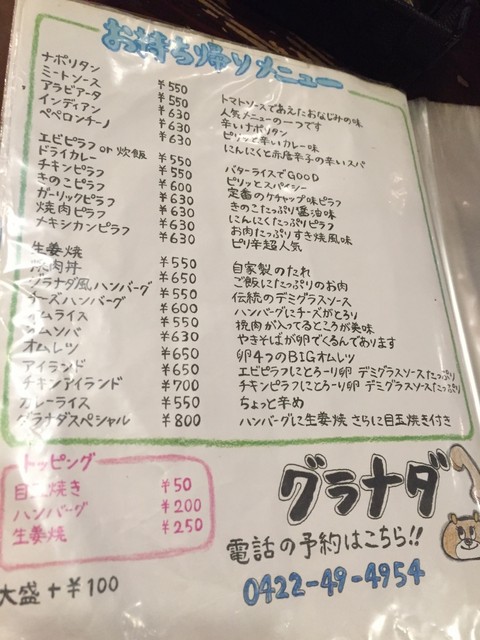 お持ち帰りメニュー
ナポリタン
ミートソース
アラビアータ
インディアン
ペペロンチーノ
エビピラフ or 炊飯
ドライカレー
チキンピラフ
きのこピラフ
ガーリックピラフ
焼肉ピラフ
チキシカンピラフ
生姜焼
焼肉丼
グラナダ風ハンバーグ
チーズハンバーグ
オムライス
オムソバ
オムレツ
アイランド
チキンアイランド
カレーライス
グラナダスペシャル
¥550
¥550
¥630
¥630
¥630
¥550
¥550
¥600
¥630
¥630
¥630
¥550
¥650
¥550
¥600
¥550
¥630
¥650
¥650
¥700
¥550
¥800
トマトソースであえたおなじみの味
人気メニューの一つです
辛いナポリタン
ピリッと辛いカレー味
にんにくと赤唐辛子の辛いスパ
バターライスでGOOD
ピリッとスパイシー
定番のケチャップ味ピラフ
きのこたっぷり醤油味
にんにくたっぷりピラフ
お肉たっぷりすき焼風味
ピリ辛超人気
自家製のたれ
ご飯にたっぷりのお肉
伝統のデミグラスソース
ハンバーグにチーズがとろり
挽肉が入ってるところが美味
やきそばが卵でくるんであります
卵4つのBIGオムレツ
エビピラフにとろーり卵 デミグラスソースたっぷり
チキンピラフにとろーり卵 デミグラスソースたっぷり
ちょっと辛め
ハンバーグに生姜焼 さらに目玉焼き付き
トッピング
目玉焼き ¥50
ハンバーグ ¥200
生姜焼 ¥250
大盛 +¥100
グラナダ
電話の予約はこちら!!
0422-49-4954